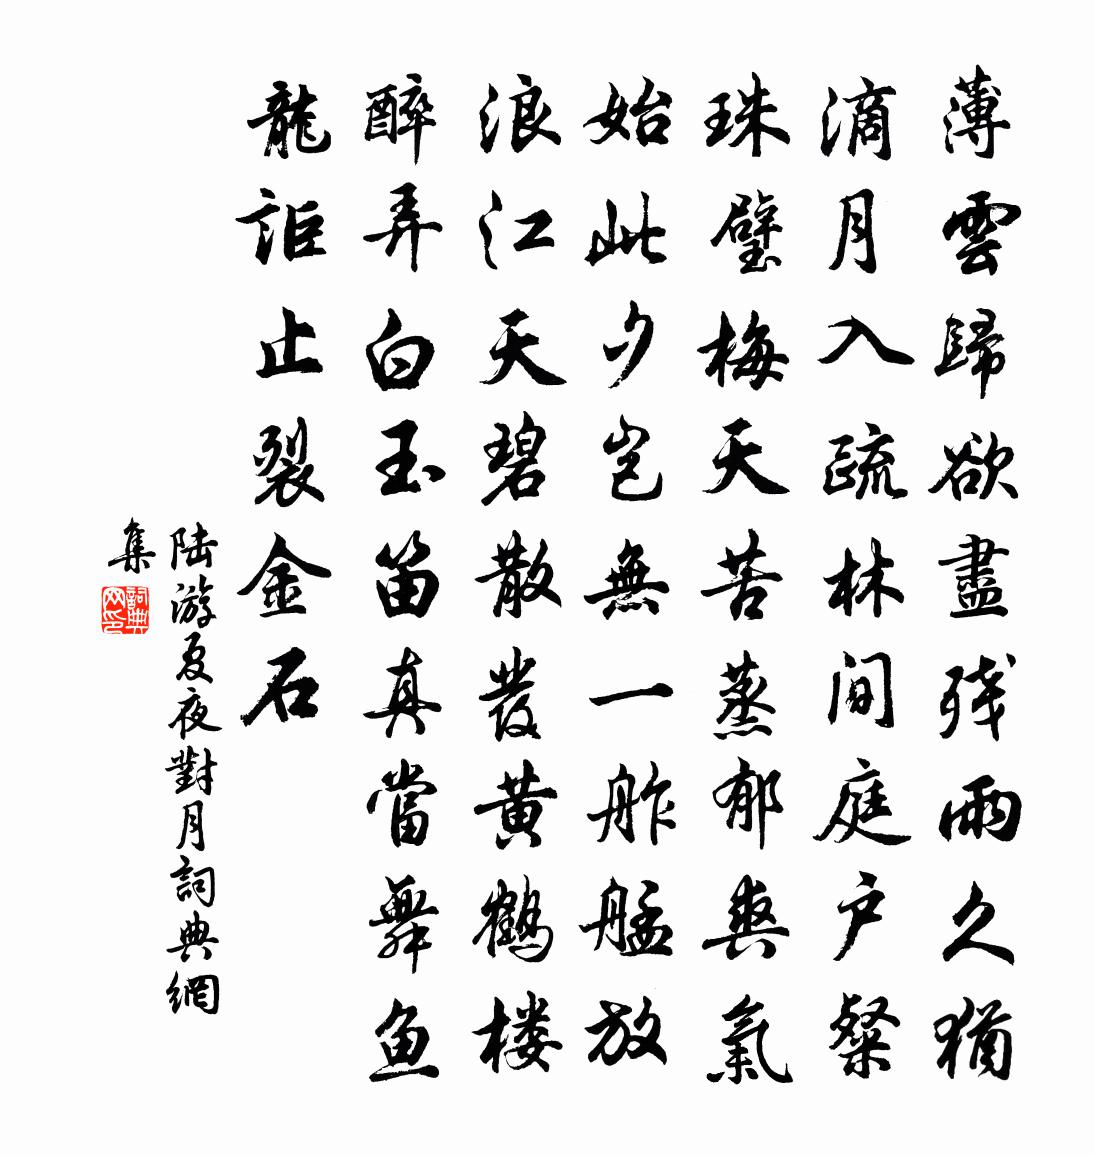 薄雲歸欲盡残雨久猶
滴月入疏林间庭户粲
珠璧梅天苦蒸郁爽氣
始此夕岂無一舴艋放
浪江天碧散發黄鶴楼
醉弄白玉笛真當舞鱼
龍詎止裂金石
陆游夏夜對月詞典網
集
詞典
网印